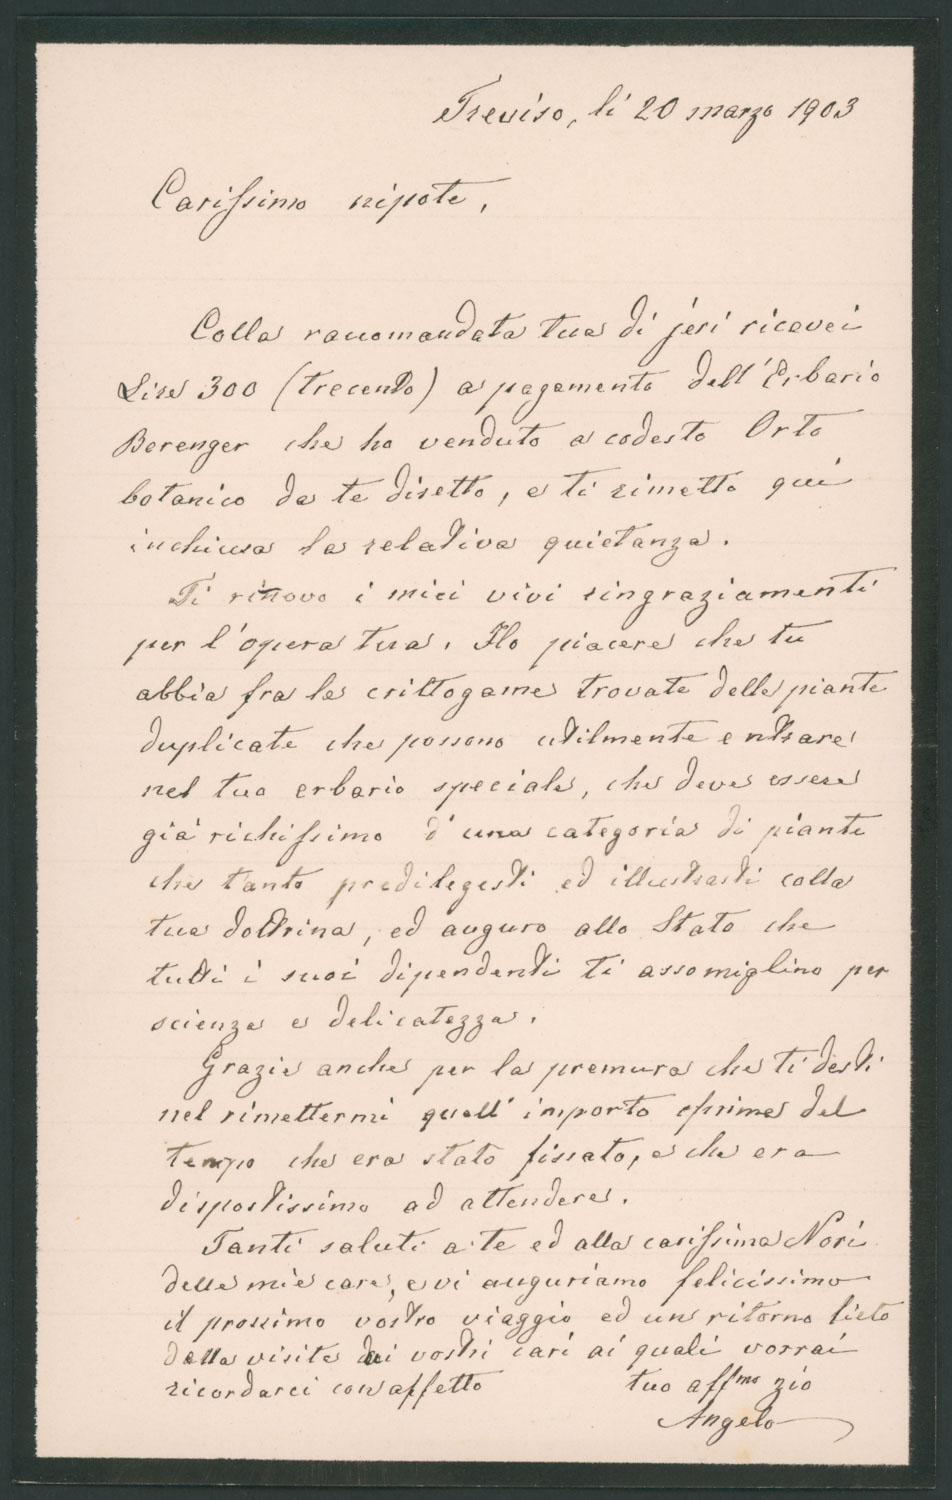 Treviso, li 20 marzo 1903
Carissimo nipote,
Colla raccomandata tua di jeri ricevei
Lire 300 (trecento) a pagamento dell'Erbario
Berenger che ho venduto a codesto Orto
botanico da te diretto, e ti rimetto qui
inchiusa la relativa quietanza.
Ti rinovo i miei vivi ringraziamenti
per l'opera tua. Ho piacere che tu
abbia fra le crittogame trovate delle piante
duplicate che possono utilmente entrare
nel tuo erbario speciale, che deve essere
già richissimo d'una categoria di piante
che tanto prediligesti ed illustrasti colla
tua dottrina, ed auguro allo Stato che
tutti i suoi dipendenti ti assomiglino per
scienza e delicatezza.
Grazie anche per la premura che ti desti
nel rimettermi quell'importo prima del
tempo che era stato fissato, e che era
dispostissimo ad attendere.
Tanti saluti a te ed alla carissima Nori
delle mie care, e vi auguriamo felicissimo
il prossimo vostro viaggio ed un ritorno lieto
dalla visita dei vostri cari ai quali vorrai
ricordarci con affetto tuo affmo zio
Angelo